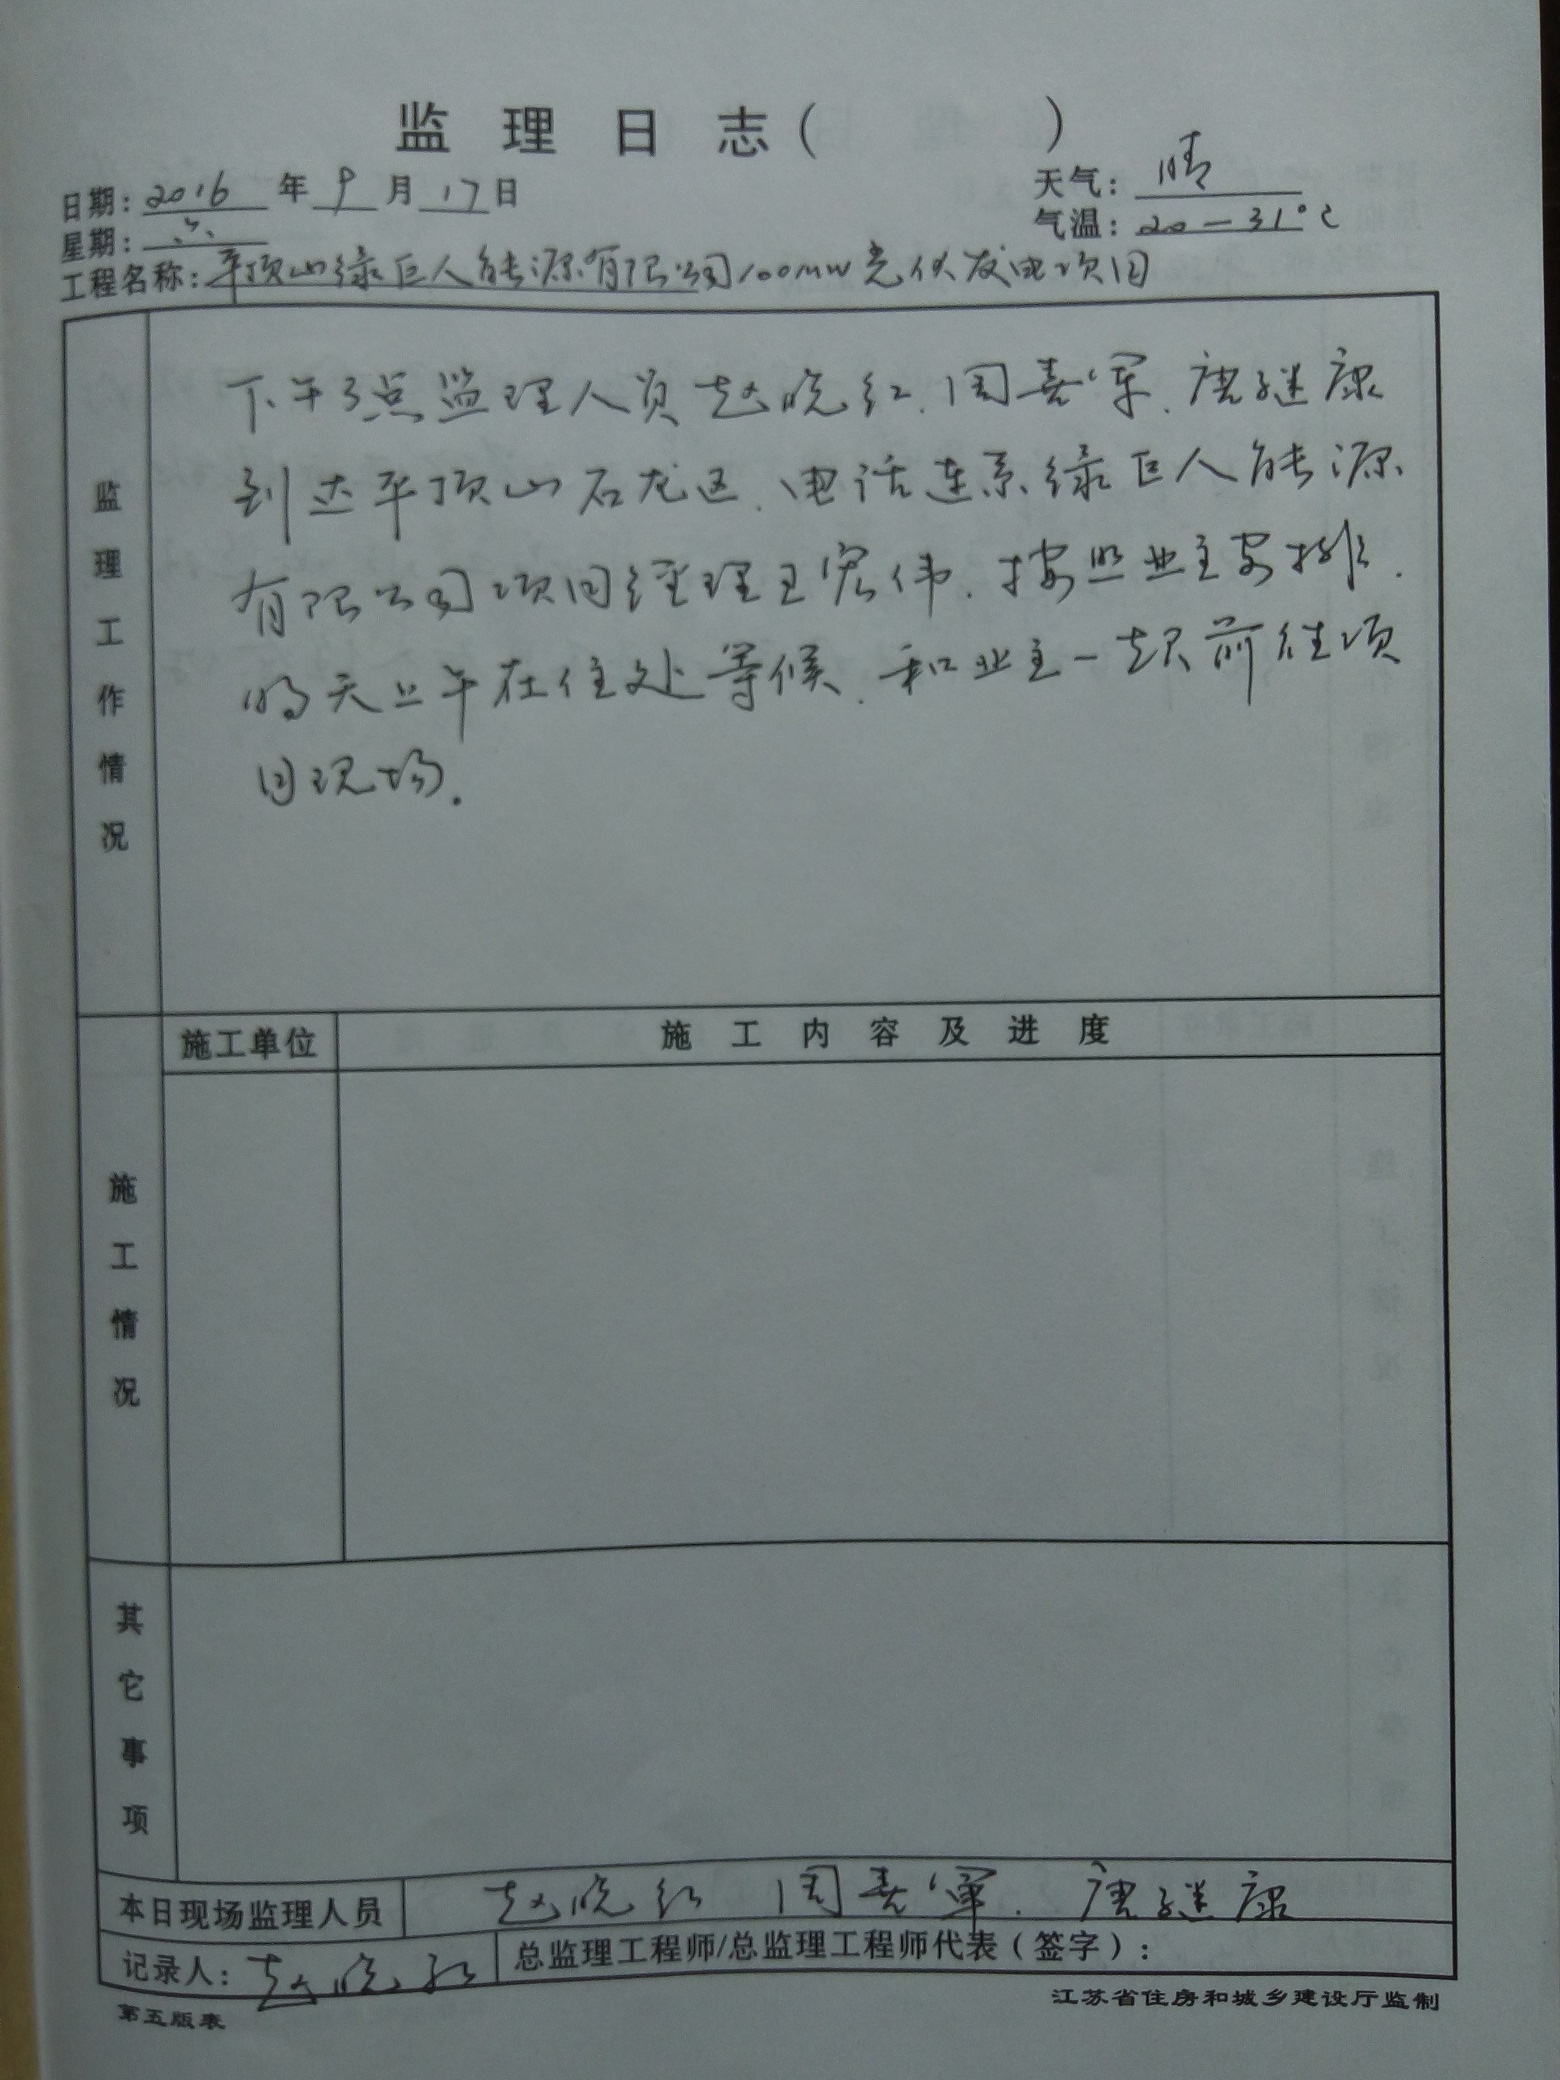 监理日志（　　　）
日期：2016年9月17日　天气：晴
星期：六　气温：20—31℃
工程名称：平顶山绿巨人能源有限公司100MW光伏发电项目
监理工作情况
下午3点监理人员赵晓红、周喜军、唐继康
到达平顶山石龙区、电话连系绿巨人能源
有限公司项目经理王宏伟、按照业主安排、
明天上午在住处等候、和业主一起前往项
目现场.
施工情况
施工单位　施工内容及进度
其它事项
本日现场监理人员　赵晓红　周喜军、唐继康
记录人：赵晓红　总监理工程师/总监理工程师代表（签字）：
第五版表　江苏省住房和城乡建设厅监制